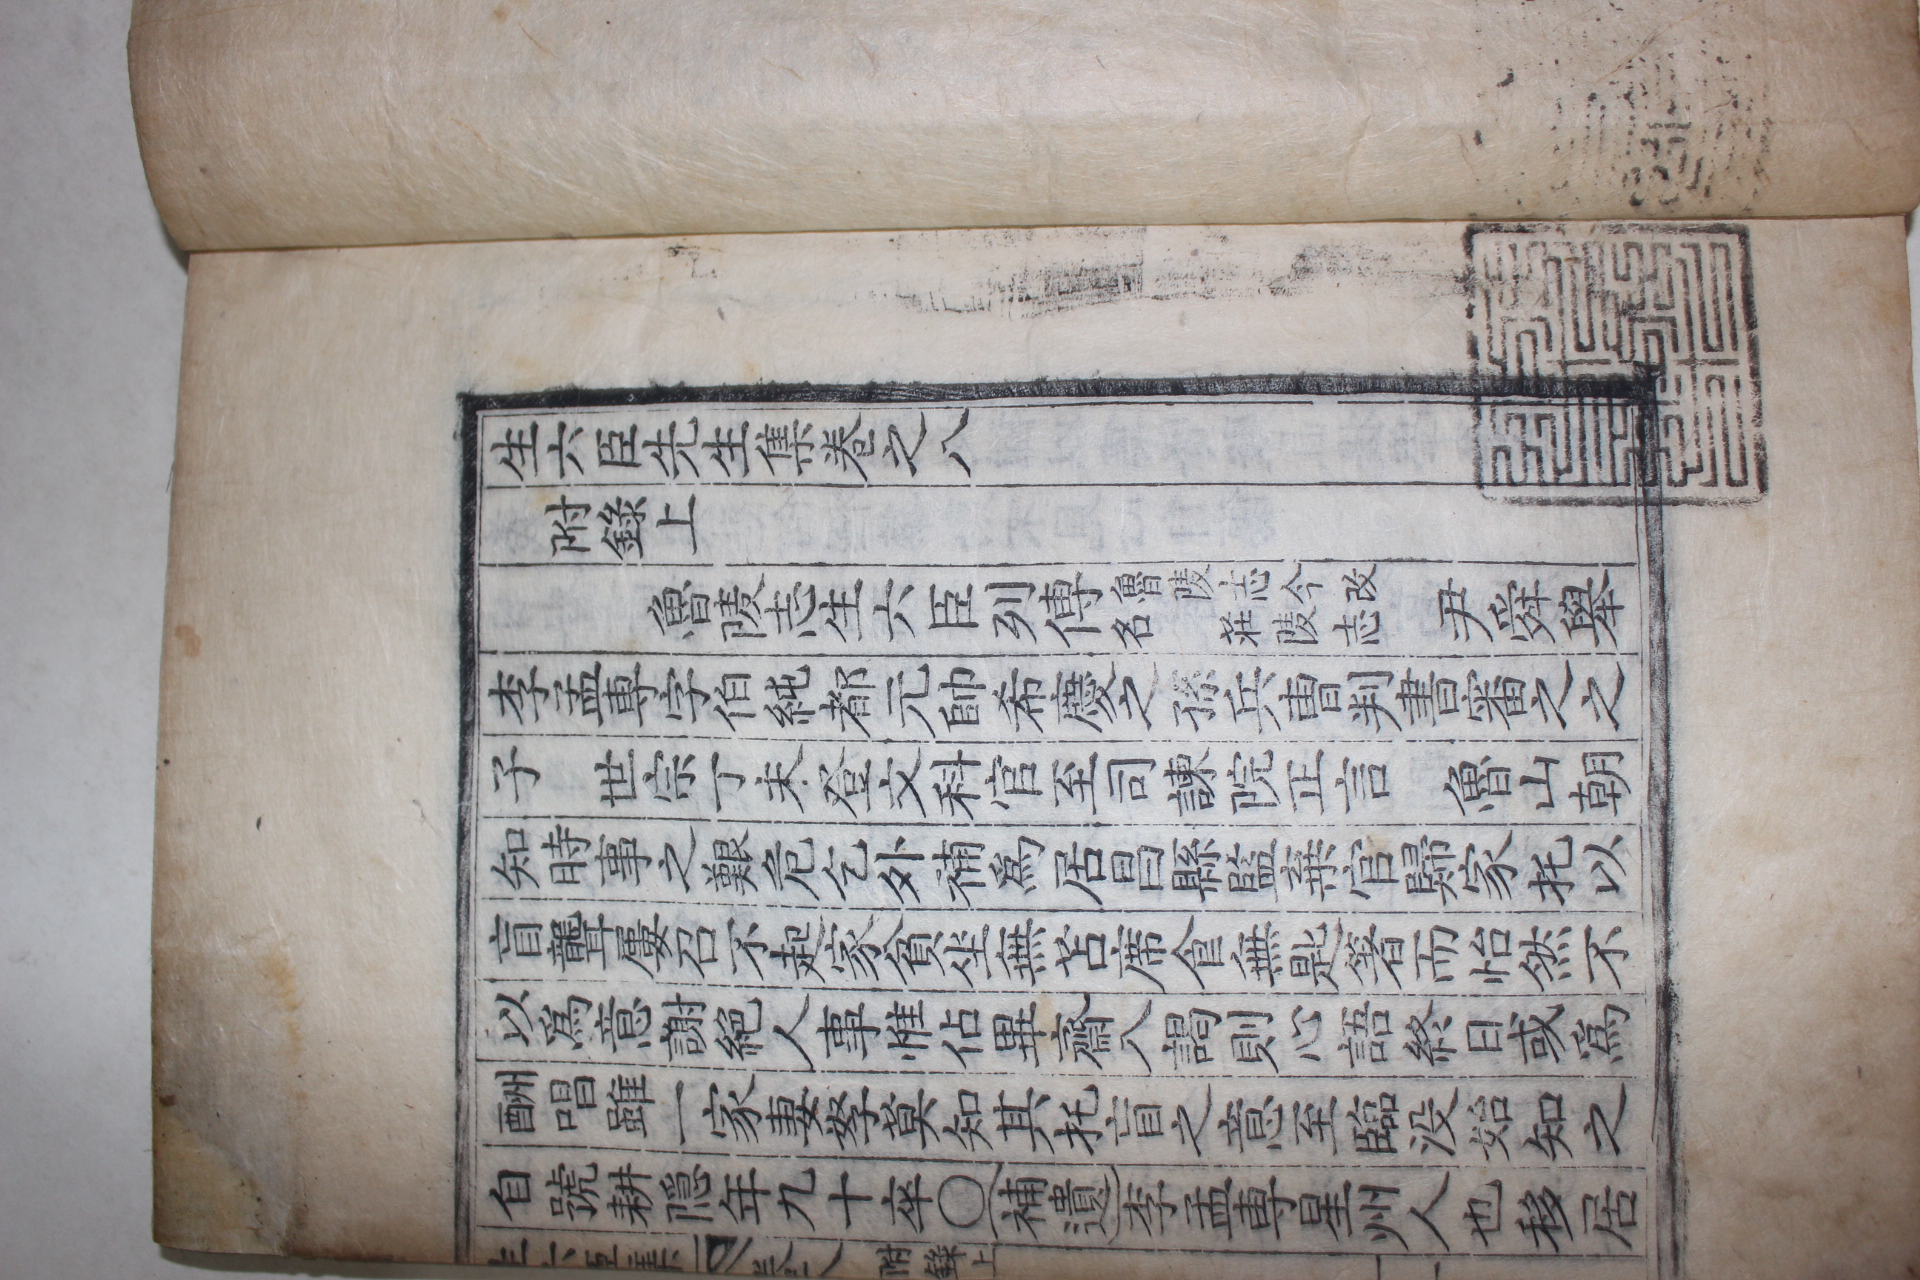 生六臣先生集卷之八
附錄上
魯陵志生六臣列傳 魯陵志今改名莊陵志 尹舜擧
李孟專字伯純都元帥希慶之孫兵曹判書審之之
子 世宗丁未登文科官至司諫院正言 魯山朝
知時事之艱危乞外補爲居昌縣監棄官歸家托以
盲聾屢召不起家貧坐無苫席食無匙箸而怡然不
以爲意謝絶人事惟佔畢齋入謁則心語終日或爲
酬唱雖一家妻孥莫知其托盲之意至臨沒始知之
自號耕隱年九十卒〇(補遺)李孟專星州人也移居
生六臣集 卷之八 附錄上